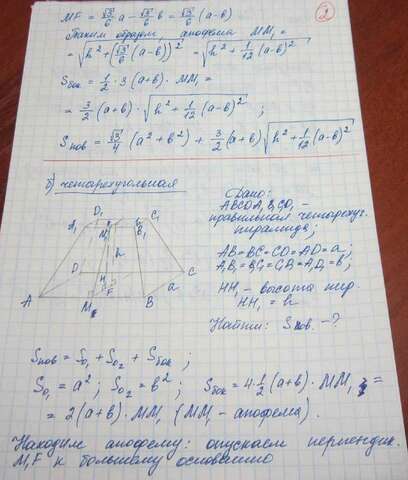 2
MF = √3/6 a - √3/6 b = √3/6 (a-b)
Таким образом, апофема MM₁ =
= √(h² + (√3/6 (a-b))²) = √(h² + 1/12 (a-b)²)
Sбок = 1/2 · 3(a+b) · MM₁ =
= 3/2 (a+b) · √(h² + 1/12 (a-b)²) ;
Sпов = √3/4 (a² + b²) + 3/2 (a+b) √(h² + 1/12 (a-b)²)
б) четырехугольная
D₁ C₁
A₁ M₁ B₁
h
D C
H
A M F B a
Дано:
ABCDA₁B₁C₁D₁ –
правильная четырехуг.
пирамида;
AB=BC=CD=AD=a;
A₁B₁=B₁C₁=C₁D₁=A₁D₁=b;
HH₁ – высота пир.
HH₁ = h
Найти: Sпов. – ?
Sпов = S₀₁ + S₀₂ + Sбок ;
S₀₁ = a² ; S₀₂ = b² ; Sбок = 4·1/2 (a+b) · MM₁ =
= 2(a+b) · MM₁ (MM₁ – апофема).
Находим апофему: опускаем перпендик.
M₁F к большему основанию